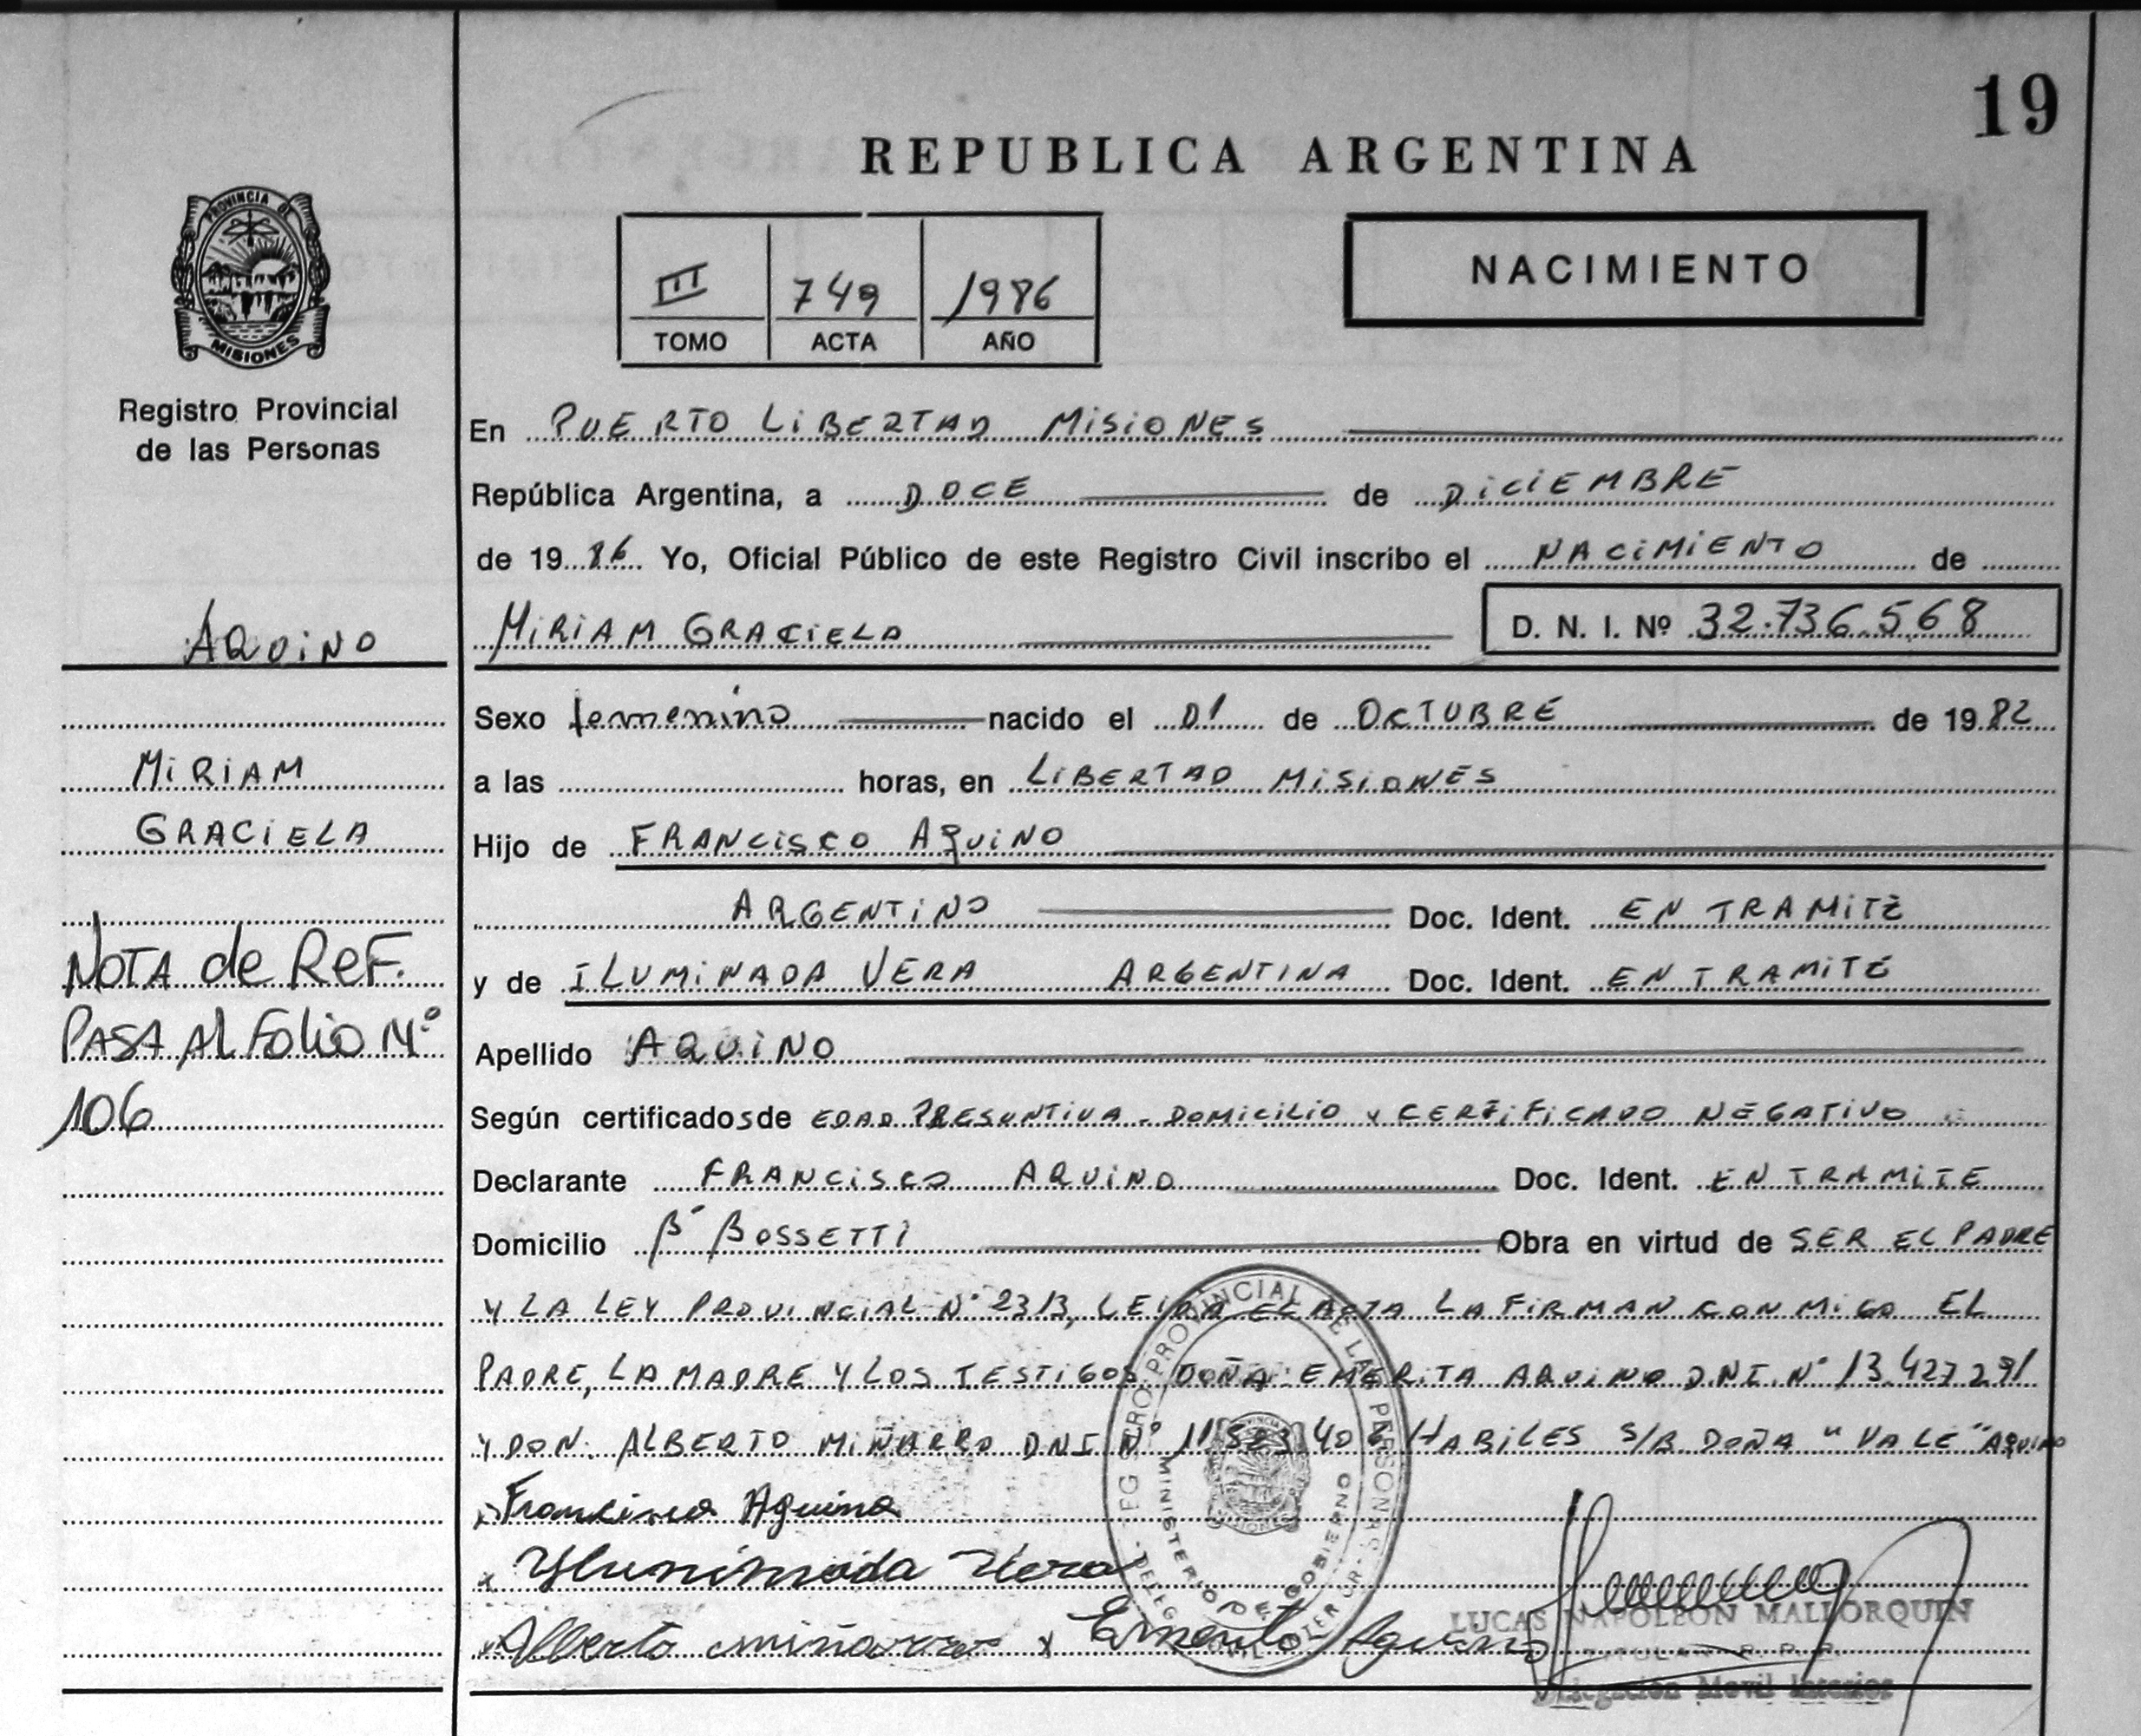 19
REPUBLICA ARGENTINA
PROVINCIA DE
MISIONES
Registro Provincial
de las Personas
III 749 1986
TOMO ACTA AÑO
NACIMIENTO
En PUERTO LIBERTAD MISIONES
República Argentina, a DOCE de DICIEMBRE
de 19 86 Yo, Oficial Público de este Registro Civil inscribo el NACIMIENTO de
MIRIAM GRACIELA D. N. I. Nº 32.736.568
AQUINO
MIRIAM
GRACIELA
NOTA de REF.
PASA Al Folio Nº
106
Sexo femenino nacido el 01 de OCTUBRE de 19 82
a las horas, en LIBERTAD MISIONES
Hijo de FRANCISCO AQUINO
ARGENTINO Doc. Ident. EN TRAMITE
y de ILUMINADA VERA ARGENTINA Doc. Ident. EN TRAMITE
Apellido AQUINO
Según certificados de EDAD PRESUNTIVA - DOMICILIO Y CERTIFICADO NEGATIVO
Declarante FRANCISCO AQUINO Doc. Ident. EN TRAMITE
Domicilio Bº BOSSETTI Obra en virtud de SER EL PADRE
Y LA LEY PROVINCIAL Nº 2313, LEIDA EL ACTA LA FIRMAN CONMIGO EL
PADRE, LA MADRE Y LOS TESTIGOS DOÑA: EMERITA AQUINO D.N.I. Nº 13.427.291
Y DON: ALBERTO MIÑARRO DNI Nº HABILES S/R DOÑA "VALE" AQUINO
x Francisco Aquino
x Yluminada Vera
x Alberto miñarro x Aquino
REGISTRO PROVINCIAL DE LAS PERSONAS
MINISTERIO DE GOBIERNO
MISIONES
LUCAS NAPOLEON MALLORQUIN
TITULAR R. P. P.
Delegación Movil Interior